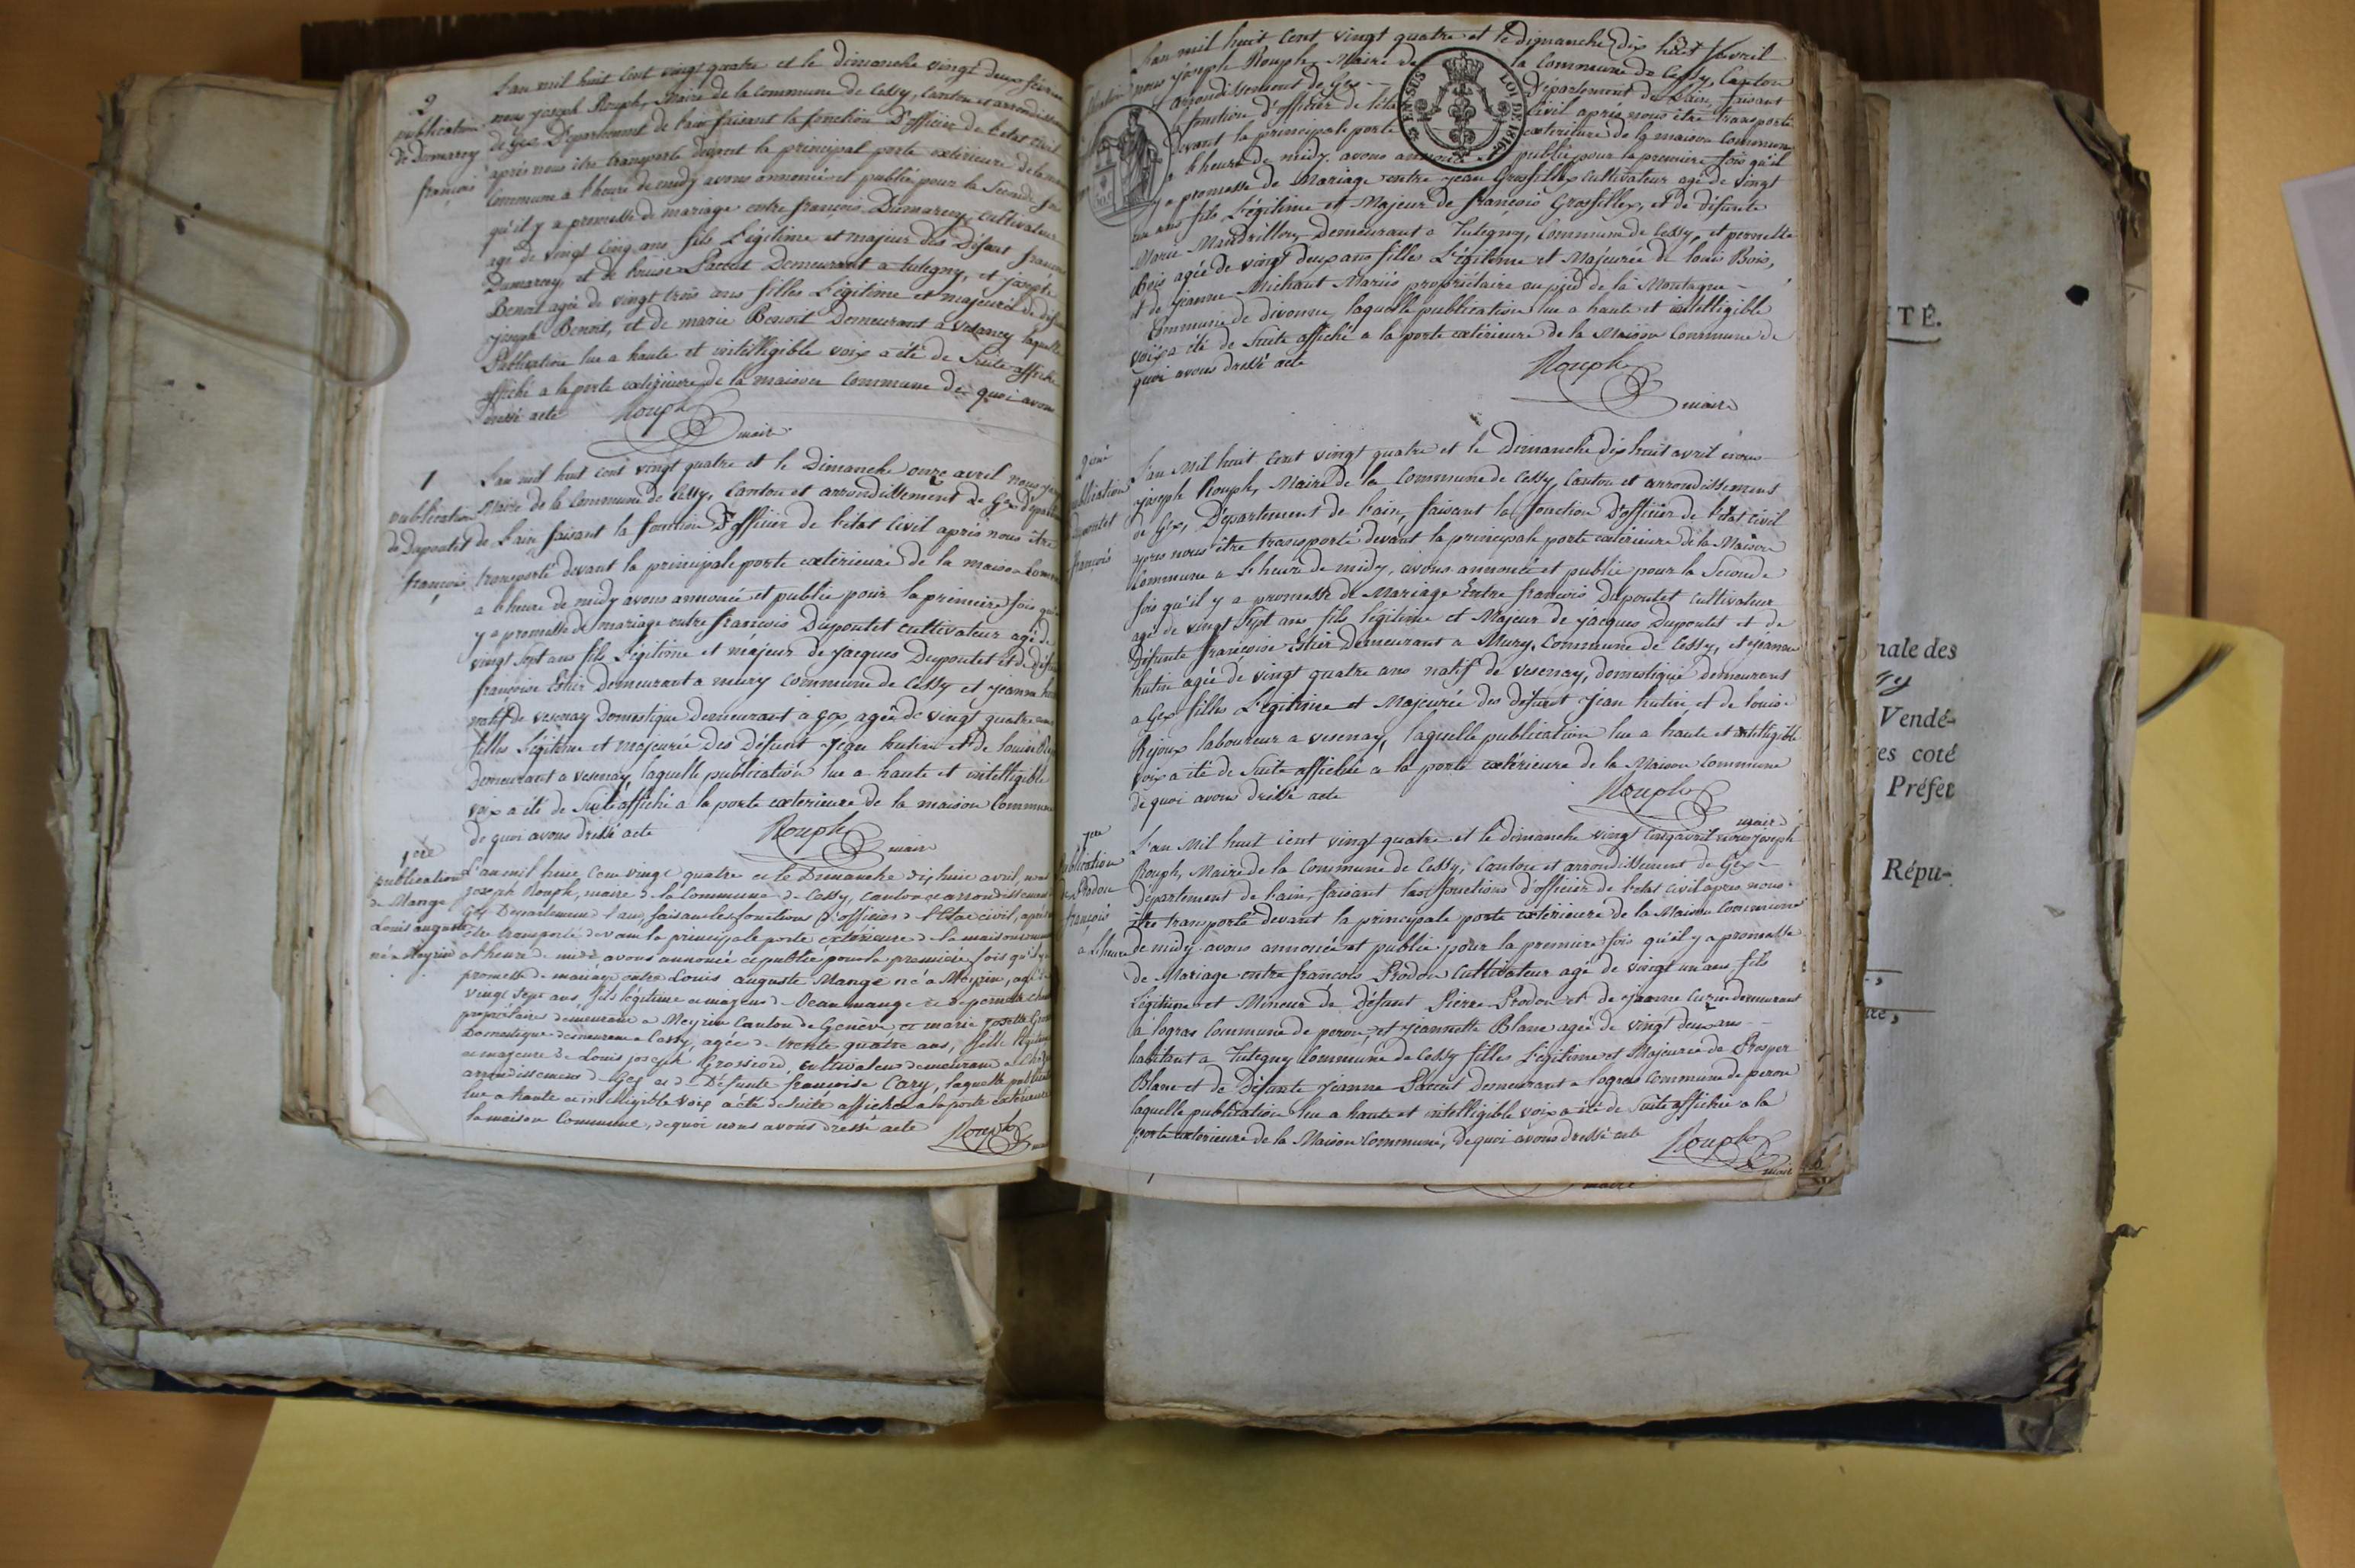 2
publication
de Dumarcy
françois
L'an mil huit cent vingt quatre et le dimanche vingt deux février
nous joseph Rouph, Maire de la commune de Cessy, Canton et arrondissem
de Gex Département de l'ain faisant la fonction D'officier de l'etat Civil
après nous être transporté devant la principal porte extérieure de la mai
Commune a l'heure de midy avons annoncé et publié pour la Seconde fois
qu'il y a promesse de mariage entre françois Dumarcy, cultivateur
agé de vingt Cinq ans fils Légitime et majeur des Défunt françois
Dumarcy, et de louise Paccut Demeurant a tutegny, et josephe
Benoit agée de vingt trois ans filles Légitime et majeurée de défun
joseph Benoit, et de marie Benoit Demeurant a Vesancy laquelle
Publication lue a haute et intelligible voix a été de Suite affiché
affiché a la porte extérieure de la maison Commune de quoi avons
dressé acte Rouph
maire
1
publication
de Dupoutet
françois
L'an mil huit cent vingt quatre et le Dimanche onze avril nous
Maire de la Commune de Cessy, Canton et arrondissement de Gex Départem
de L'ain faisant la fonction D'officier de l'etat Civil après nous être
transporté devant la principale porte extérieure de la maison Commu
a l'heure de midy avons annoncé et publié pour la première fois qu'il
y a promesse de mariage entre françois Dupoutet cultivateur agé de
vingt Sept ans fils Légitime et majeur de jacques Dupoutet et de défun
françoise Estier Demeurant a mury commune de Cessy et jeanne hutin
natif de vesenay Domestique demeurant a Gex, agée de vingt quatre ans
filles Légitime et majeurée Des Défunt Jean hutin et de louise
Demeurant a vesenay, laquelle publication lue a haute et intelligible
voix a été de Suite affiché a la porte extérieure de la maison Commune
de quoi avons dressé acte Rouph
maire
1ere
publication
de Mange
Louis auguste
né a Meyrin
L'an mil huit Cent vingt quatre et le Dimanche dix huit avril, nous
joseph Rouph, maire de la Commune de Cessy, canton et arrondissement de
Gex Département de l'ain, faisant les fonctions d'officier de l'etat civil, après
être transporté devant la principale porte extérieure de la maison commune
a l'heure de midi avons annoncé et publié pour la première fois qu'il y a
promesse de mariage entre Louis auguste Mange né a Meyrin, agé de
vingt sept ans, fils légitime et majeur de Jean mange et de pernette
propriétaires demeurant a Meyrin Canton de Genève, et marie josette
Domestique demeurant a Cessy, agée de trente quatre ans, fille légitime
et majeure de Louis joseph Grossiord, cultivateur demeurant a
arrondissement de Gex et de Défunte françoise Cary, laquelle publication
lue a haute et intelligible voix a été de suite affichée a la porte extérieure
la maison Commune, de quoi nous avons dressé acte Rouph
L'an mil huit Cent vingt quatre et le dimanche dix huit Avril
nous joseph Rouph, Maire de la commune de Cessy, Canton
arrondissement de Gex Département de l'ain, faisant
fonction d'officier de l'état Civil après nous être transporté
devant la principale porte extérieure de la maison Commune
a l'heure de midy, avons annoncé et publié pour la première fois qu'il
y a promesse de Mariage entre jean Grosfillex cultivateur agé de vingt
un ans fils Légitime et Majeur de françois Grosfillex, et de défunte
Marie Mandrillon, Demeurant a Tutegny, Commune de Cessy, et pernette
Bois agée de vingt deux ans filles Légitime et Majeurée de louis Bois,
et de jeanne Michaut Mariés propriétaire au pied de la Montagne
Commune de divonne, laquelle publication lue a haute et intelligible
voix a été de Suite affiché a la porte extérieure de la Maison Commune de
quoi avons dressé acte
Rouph
maire
EN SUS
LOI DE 1816
2eme
publication
Dupoutet
françois
L'an Mil huit Cent vingt quatre et le Dimanche dix huit avril nous
joseph Rouph, Maire de la Commune de Cessy, Canton et arrondissement
de Gex, Département de l'ain, faisant la fonction D'officier de l'etat Civil
apres nous être transporté devant la principale porte extérieure de la Maison
Commune a l'heure de midy, avons annoncé et publié pour la Seconde
fois qu'il y a promesse de Mariage Entre françois Dupoutet cultivateur
agé de vingt Sept ans fils légitime et Majeur de jacques Dupoutet et de
Défunte françoise Estier Demeurant a Mury, Commune de Cessy, et jeanne
hutin agée de vingt quatre ans natif de vesenay, domestique demeurant
a Gex filles Légitime et Majeurée des défunt Jean hutin et de louise
Rejoux laboureur a vesenay, laquelle publication lue a haute et intelligible
voix a été de Suite affiché a la porte extérieure de la Maison Commune
de quoi avons dressé acte Rouph
maire
1ere
publication
de Prodon
françois
L'an Mil huit Cent vingt quatre et le dimanche vingt Cinq avril nous joseph
Rouph, Maire de la Commune de Cessy, Canton et arrondissement de Gex
Département de l'ain, faisant les fonctions d'officier de l'etat civil apres nous
être transporté devant la principale porte extérieure de la Maison Commune
a l'heure de midy avons annoncé et publié pour la première fois qu'il y a promesse
de Mariage entre françois Prodon Cultivateur agé de vingt un ans fils
Légitime et Mineur de Défunt Pierre Prodon et de jeanne demeurant
a logras Commune de peron, et jeannette Blanc agée de vingt deux ans
habitant a Tutegny Commune de Cessy filles Légitime et Majeurée de Prosper
Blanc et de Défunte Jeanne Paccut Demeurant a logras Commune de peron
laquelle publication lue a haute et intelligible voix a été de Suite affichée a la
porte extérieure de la Maison Commune, de quoi avons dressé acte Rouph
maire
maire
ITÉ.
nale des
Vendé-
es coté
Préfet
Répu-